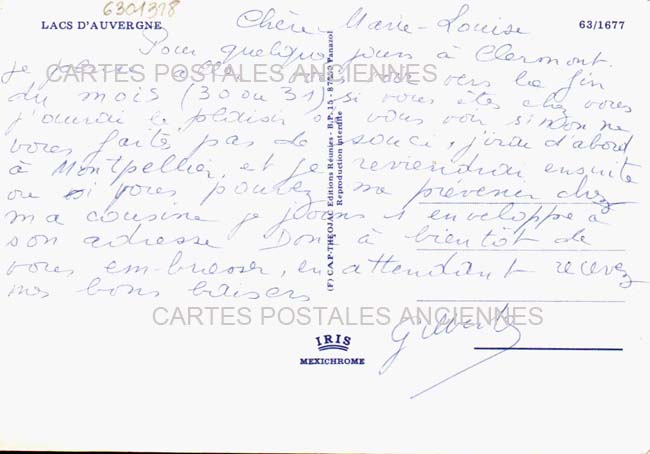 6301318
LACS D'AUVERGNE
63/1677
Chère Marie-Louise
Pour quelques jours à Clermont.
je pense aller vous voir vers la fin
du mois (30 ou 31) si vous êtes chez vous
j'aurai le plaisir de vous voir sinon ne
vous faite pas de souci, j'irai d'abord
à Montpellier, et je reviendrai ensuite
ou si vous pouvez me prévenir chez
ma cousine je joins 1 enveloppe à
son adresse Donc à bientôt de
vous embrasser, en attendant recevez
mes bons baisers
Gilberte
CARTES POSTALES ANCIENNES
CARTES POSTALES ANCIENNES
(F) CAP-THEOJAC Editions Réunies - B.P. 15 - 87350 Panazol
Reproduction interdite
IRIS
MEXICHROME